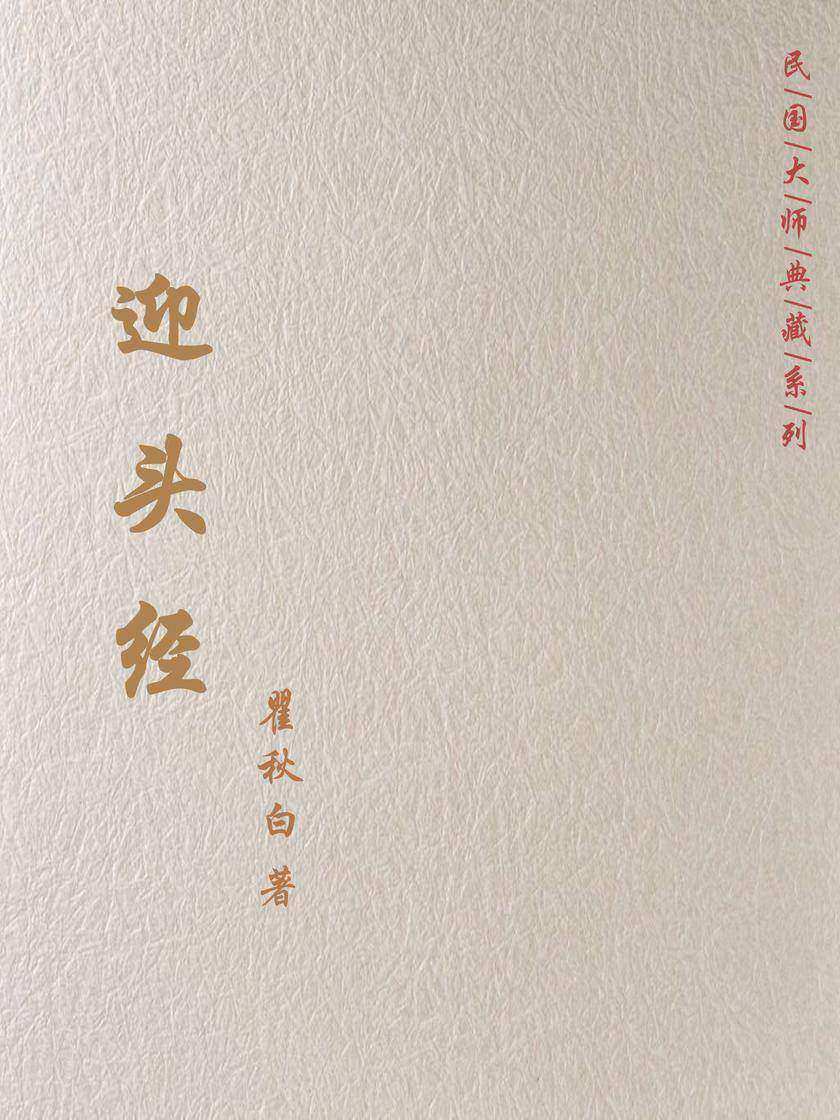 民|国|大|师|典|藏|系|列
迎头经
瞿秋白 著